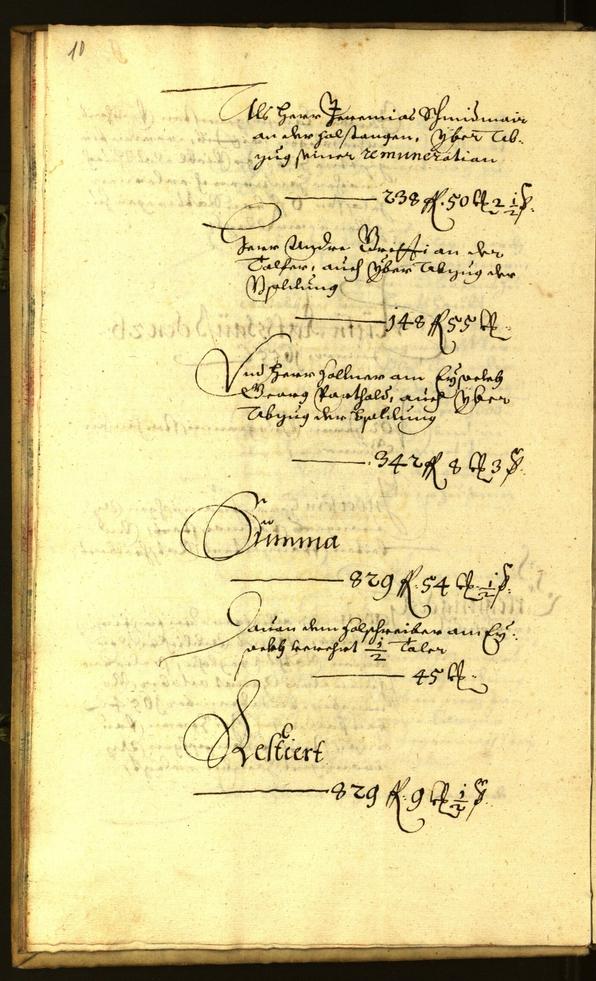 10
Als Herr Jeremias Schmidmair
an der Holstangen, yber Ab-
zug seiner remuneration
238 fl. 50 kr 2 1/2 d.
Herr Andre an der
Talfer, auch yber Abzug der
Bsoldung
148 fl 55 kr.
Vnd Herr Zollner am Eysackh
Georg auch yber
Abzug der Bsoldung
342 fl 8 kr 3 d.
Summa
829 fl. 54 kr. 1/2 d.
Dauon dem Zolschreiber am Ey-
sackh verehrt 1/2 Taler
45 kr.
Restiert
829 fl. 9 kr 1/2 d.